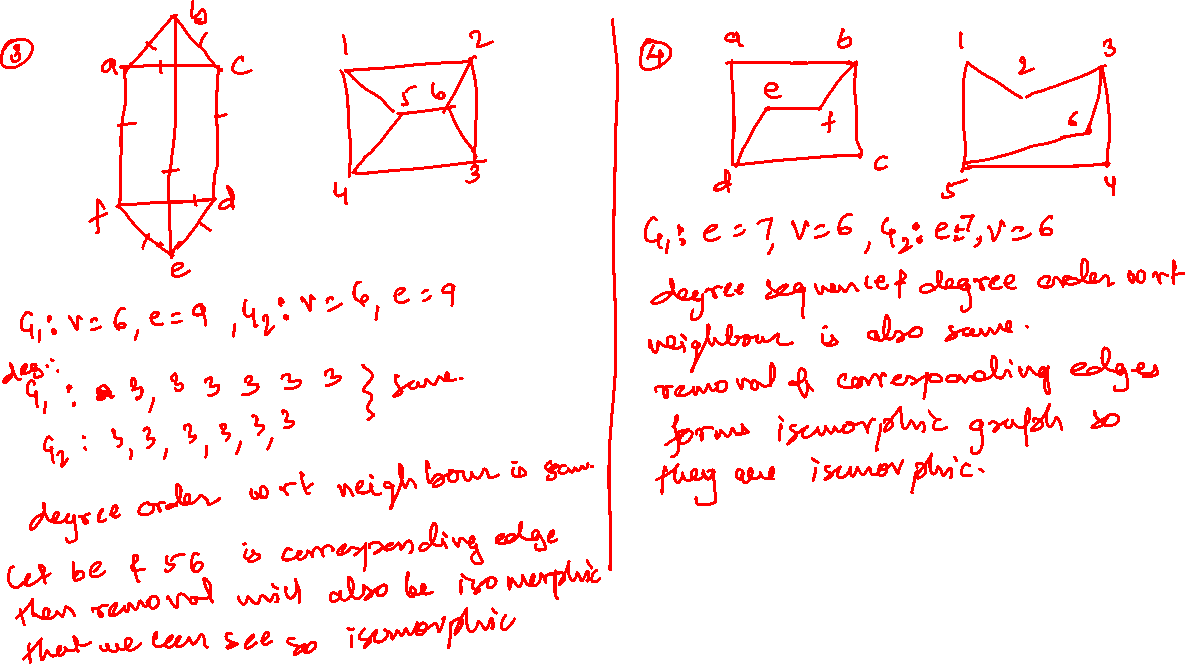 ③
b
a
c
f
d
e
1
2
5
6
4
3
G₁: v=6, e=9, G₂: v=6, e=9
deg::
G₁: 3, 3 3 3 3 3 } same.
G₂: 3, 3, 3, 3, 3, 3
degree order wrt neighbour is same
Let be & 56 is corresponding edge
then removal will also be isomorphic
that we can see so isumorphic
④
a
b
e
f
d
c
1
2
3
6
5
4
G₁: e=7, v=6, G₂: e=7, v=6
degree sequence & degree order wrt
neighbour is also same.
removal of corresponding edges
forms isumorphic graph so
they are isumorphic.